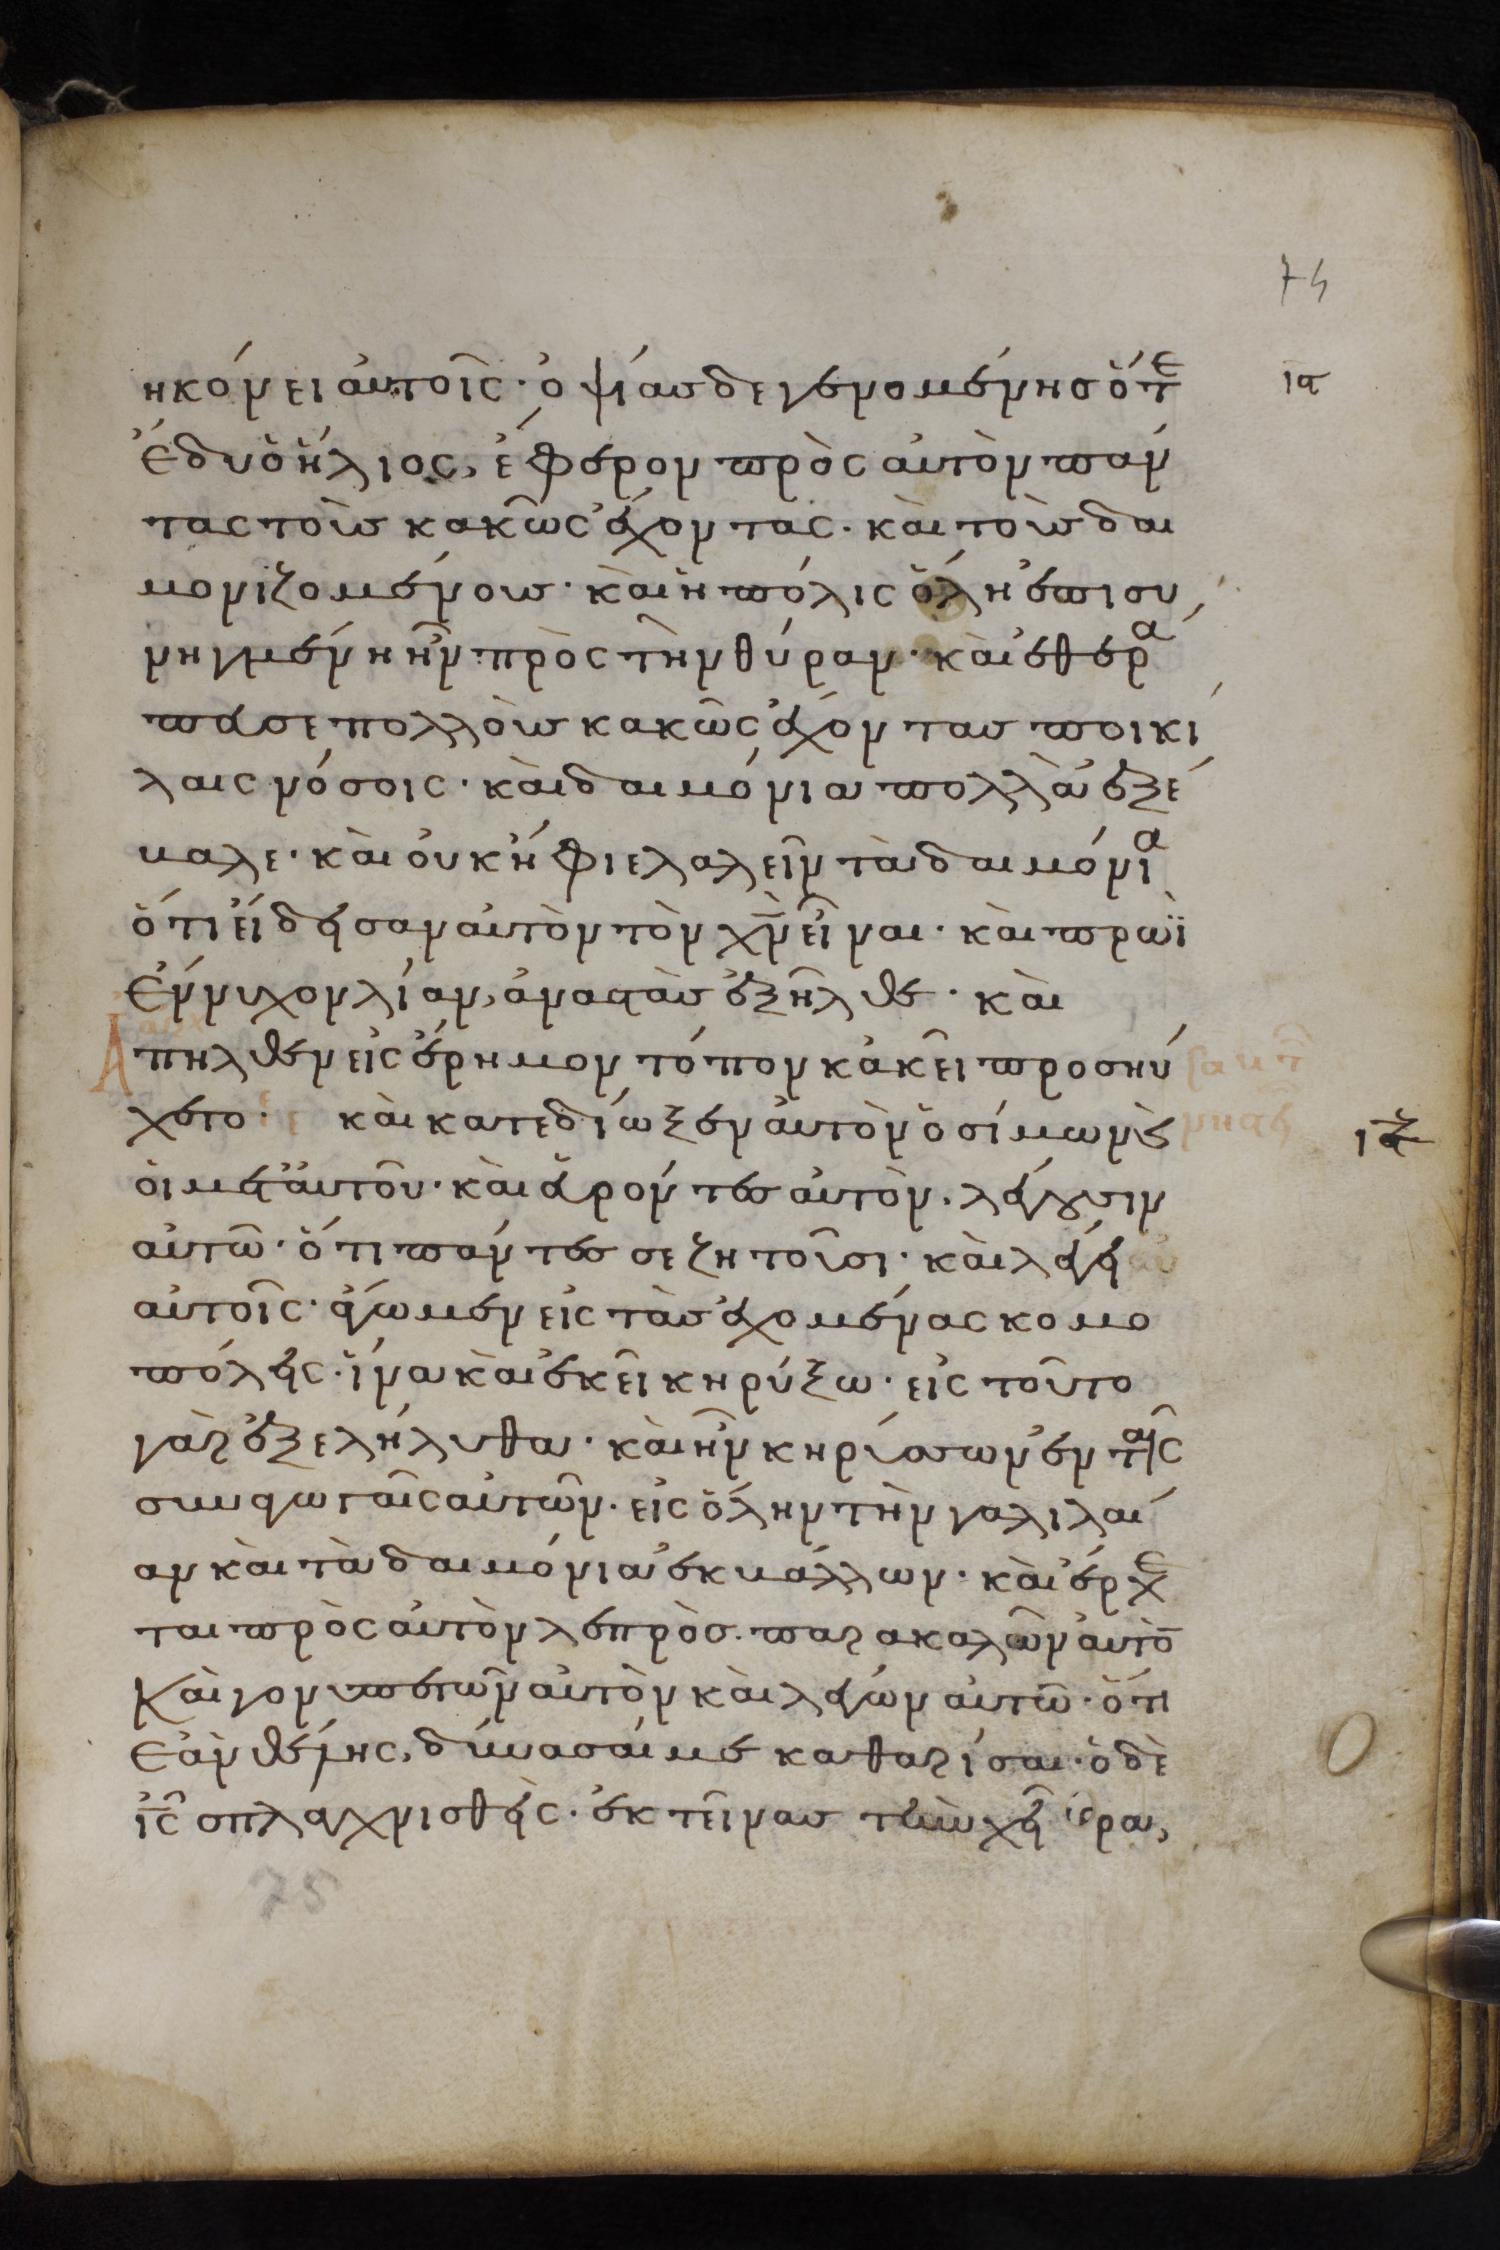 74
ηκόνει αὐτοῖς· ὀψίας δε γενομένης ὅτε
ια
ἔδυ ὁ ἥλιος, ἔφερον πρὸς αὐτὸν πάν
τας τοὺς κακῶς ἔχοντας· καὶ τοὺς δαι
μονιζομένους· καὶ ἡ πόλις ὅλη ἐπισυ
νηγμένη ἦν πρὸς τὴν θύραν· καὶ ἐθερα
πευσε πολλοὺς κακῶς ἔχοντας ποικί
λαις νόσοις· καὶ δαιμόνια πολλὰ ἐξέ
βαλε· καὶ οὐκ ἤφιε λαλεῖν τὰ δαιμόνια
ὅτι εἴδεισαν αὐτὸν τὸν χν εἶναι· καὶ πρωῒ
ἔννυχον λίαν, ἀναστὰς ἐξῆλθε· καὶ
ἀπηλθεν εἰς ἔρημον τόπον κἀκεῖ προσηύ
χετο· καὶ κατεδίωξεν αὐτὸν ὁ σίμων καὶ
ιζ
οἱ μετ αὐτοῦ· καὶ εὑρόντες αὐτὸν, λέγουσιν
αὐτῶ· ὅτι πάντες σε ζητοῦσι· καὶ λέγει
αὐτοῖς· ἄγωμεν εἰς τὰς ἐχομένας κομο
πόλεις· ἵνα καὶ ἐκεῖ κηρύξω· εἰς τοῦτο
γὰρ ἐξελήλυθα· καὶ ἦν κηρύσσων ἐν ταῖς
συναγωγαῖς αὐτῶν· εἰς ὅλην τὴν γαλιλαί
αν καὶ τὰ δαιμόνια ἐκβάλλων· καὶ ἔρχε
ται πρὸς αὐτὸν λεπρὸς· παρακαλῶν αὐτὸ
καὶ γονυπετῶν αὐτὸν καὶ λέγων αὐτῶ· ὅτι
ἐὰν θέλης, δύνασαί με καθαρίσαι· ὁ δὲ
ις σπλαγχνισθεὶς· ἐκτεῖνας τὴν χεῖρα,
75